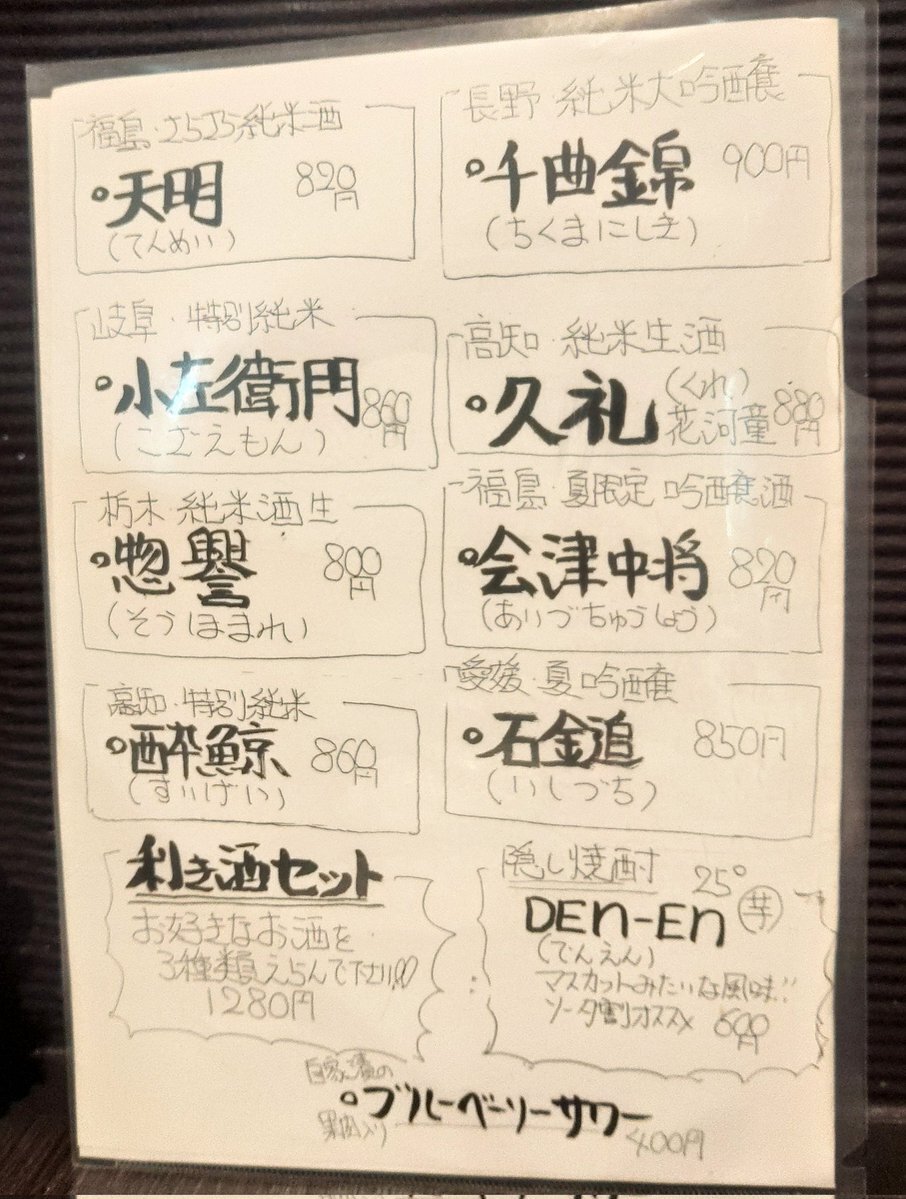 福島・さらさら純米酒
○天明 820円
(てんめい)
長野・純米大吟醸
○千曲錦 900円
(ちくまにしき)
岐阜・特別純米
○小左衛門 860円
(こざえもん)
高知 純米生酒
○久礼 (くれ)
花河童 880円
栃木 純米酒生
○惣譽 800円
(そうほまれ)
福島・夏限定 吟醸酒
○会津中将 820円
(あいづちゅうしょう)
高知・特別純米
○酔鯨 860円
(すいげい)
愛媛・夏吟醸
○石鎚 850円
(いしづち)
利き酒セット
お好きなお酒を
3種類えらんで下さい!!
1280円
隠し焼酎 25°
DEn-En 芋
(でんえん)
マスカットみたいな風味!!
ソーダ割オススメ 600円
自家漬の
果肉入り
○ブルーベーリーサワー
400円